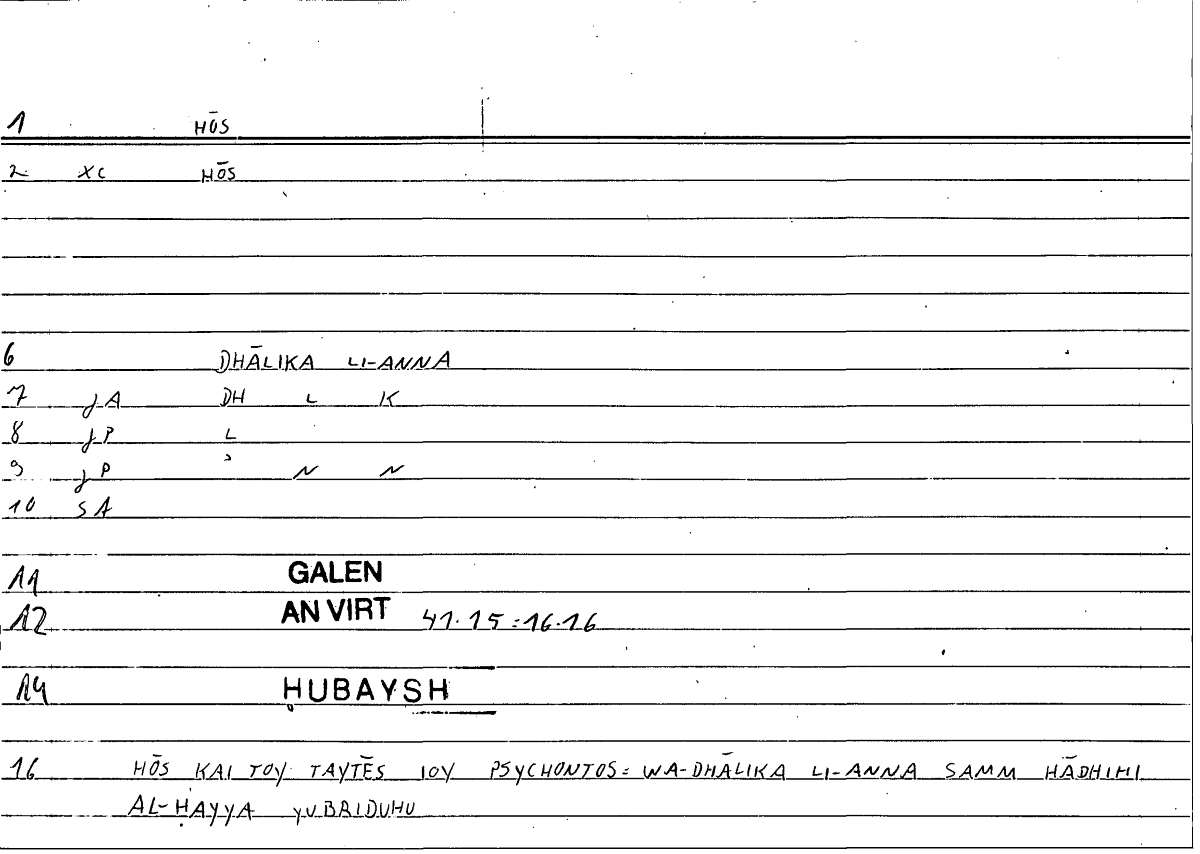 1 HŌS
2 XC HŌS
6 DHĀLIKA LI-ANNA
7 JA DH L K
8 JP L
9 JP ʾ N N
10 SA
11 GALEN
12 AN VIRT 41.15=16.16
14 ḤUBAYSH
16 HŌS KAI TOY TAYTĒS IOY PSYCHONTOS = WA-DHĀLIKA LI-ANNA SAMM HĀDHIHI
AL-ḤAYYA YUBRIDUHU